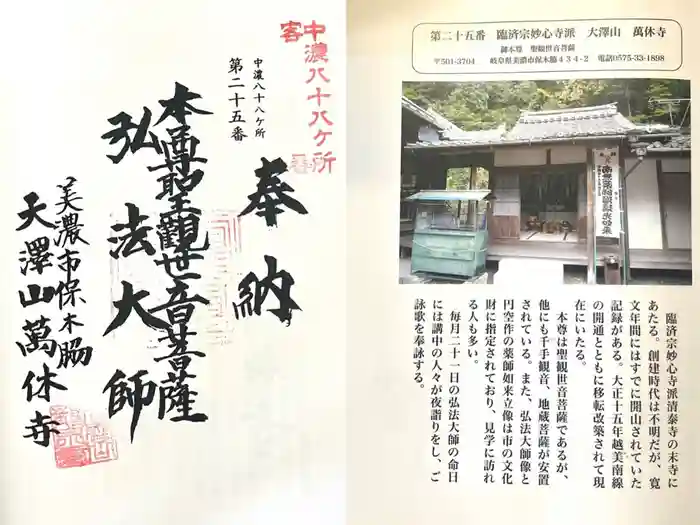 中濃八十八ヶ所
客番
中濃八十八ケ所
第二十五番
奉納
本尊聖觀世音菩薩
弘法大師
美濃市保木脇
天澤山萬休寺
第二十五番 臨済宗妙心寺派 大澤山 萬休寺
御本尊 聖観世音菩薩
〒501-3704 岐阜県美濃市保木脇434-2 電話0575-33-1898
臨済宗妙心寺派清泰寺の末寺に
あたる。創建時代は不明だが、寛
文年間にはすでに開山されていた
記録がある。大正十五年越美南線
の開通とともに移転改築されて現
在にいたる。
本尊は聖観世音菩薩であるが、
他にも千手観音、地蔵菩薩が安置
されている。また、弘法大師像と
円空作の薬師如来立像は市の文化
財に指定されており、見学に訪れ
る人も多い。
毎月二十一日の弘法大師の命日
には講中の人々が夜詣りをし、ご
詠歌を奉詠する。